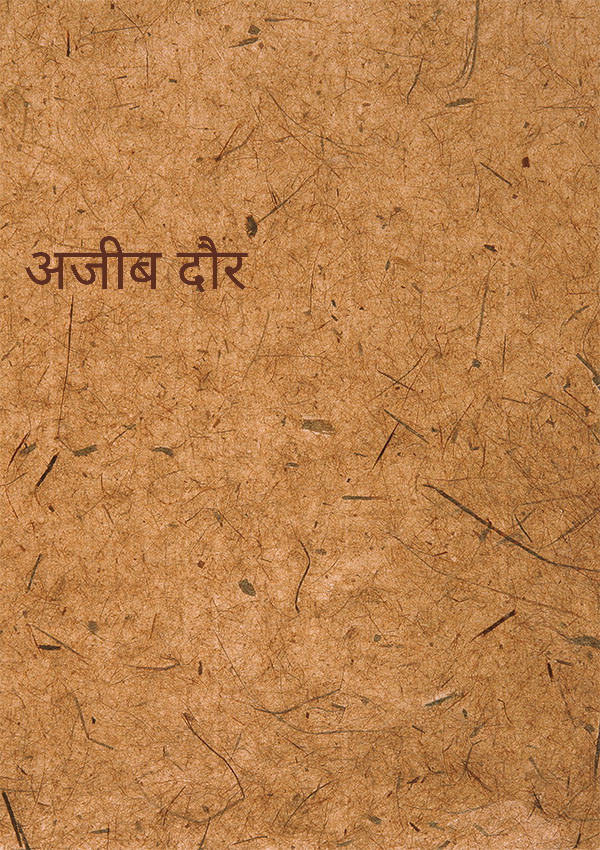 अजीब दौर